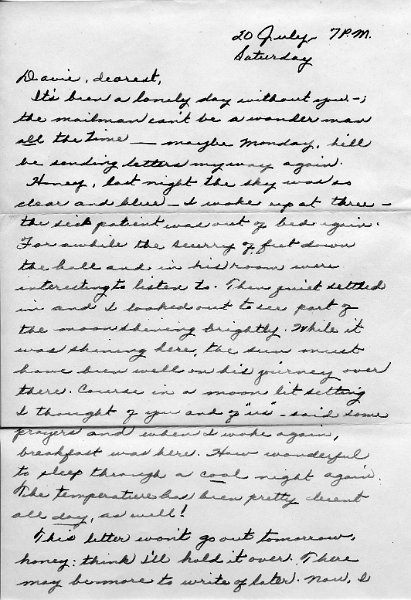 20 July 7 P.M.
Saturday
Davie, dearest,
It's been a lonely day without you -;
the mailman can't be a wonder man
all the time — maybe Monday, he'll
be sending letters my way again.
Honey, last night the sky was so
clear and blue - I woke up at three -
the sick patient was out of bed again.
For awhile the scurry of feet down
the hall and in his room were
interesting to listen to. Then quiet settled
in and I looked out to see part of
the moon shining brightly. While it
was shining here, the sun must
have been well on his journey over
there. Course in a moon lit setting
I thought of you and of "us" - said some
prayers and when I woke again,
breakfast was here. How wonderful
to sleep through a cool night again.
The temperature has been pretty decent
all day, as well!
This letter won't go out tomorrow,
honey: think I'll hold it over. There
may be more to write of later. Now, I